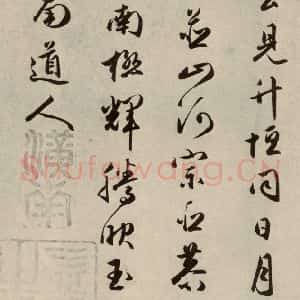 見升恒同日月
並山河宗社恭
南極輝騰映玉
南道人
Shufawang.CN